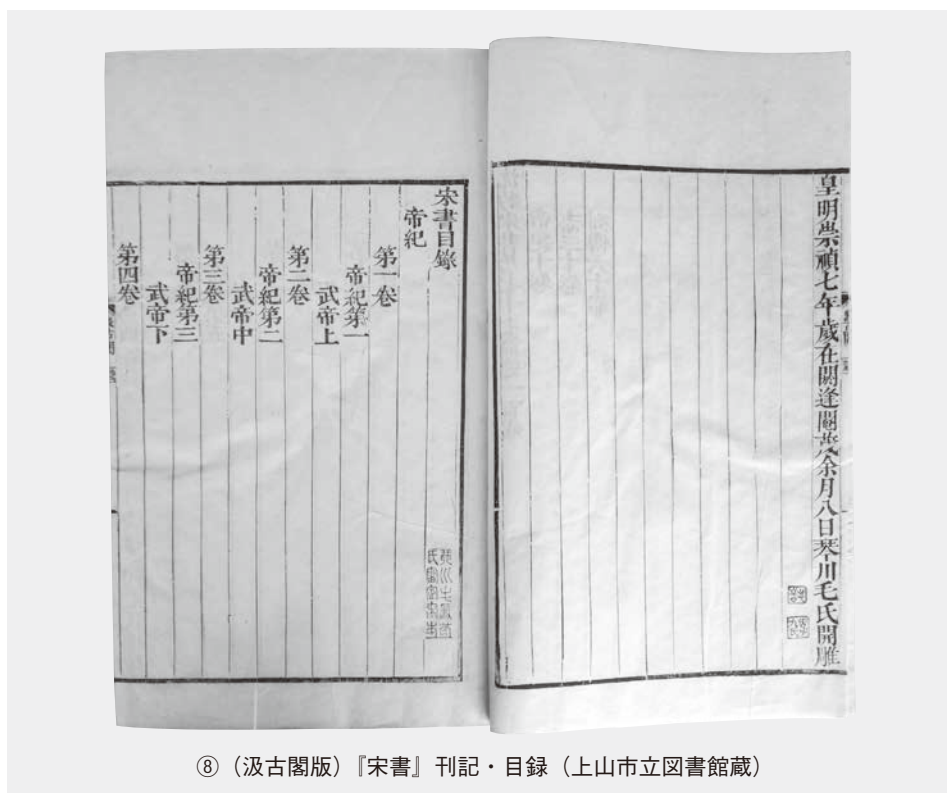 皇明崇禎七年歲在閼逢閹茂余月八日琴川毛氏開雕
宋書目錄
帝紀
第一卷
帝紀第一
武帝上
第二卷
帝紀第二
武帝中
第三卷
帝紀第三
武帝下
第四卷
⑧（汲古閣版）『宋書』刊記・目録（上山市立図書館蔵）